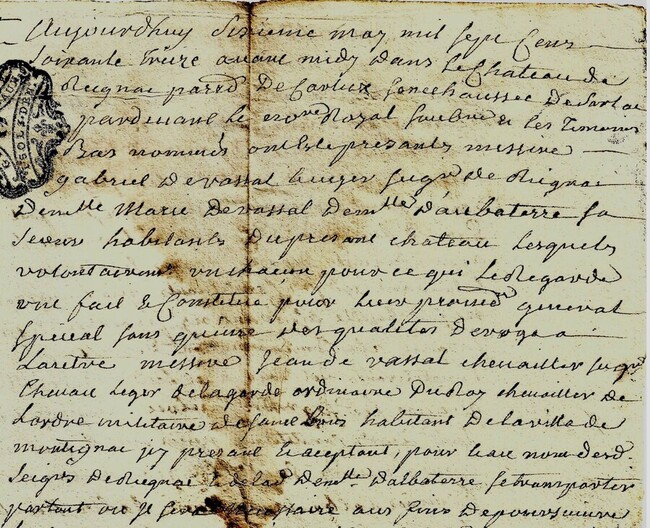 Aujourdhuy sixieme may mil sept cens
soixante treize avant midy dans le Chateau de
Reignac parr. De Carlux senechaussee De Sarlat
pardevant le no.re Royal soubne & les temoins
Bas nommés ont eté presants messire
gabriel De vassal ecuyer seigr. de Reignac
Demlle Marie De vassal Demlle D'aubaterre sa
soeur habitants Dupresant chateau Lesquels
volontairemt. un chacun pour ce qui Le Regarde
ont fait & Constitué pour leur procur general
special sans qu'une des qualités Deroge a
Lautre messire Jean de vassal chevailler seigr.
Chevau Leger delagarde ordinaire Du Roy chevailler de
Lordre militaire de saint Louis habitant De la ville de
montignac icy presant & acceptant, pour & au nom desd.
Seigr. De Reignac & de lad. Demlle Dalbaterre se transporter
partout ou il sera necessaire aux fins De poursuivre